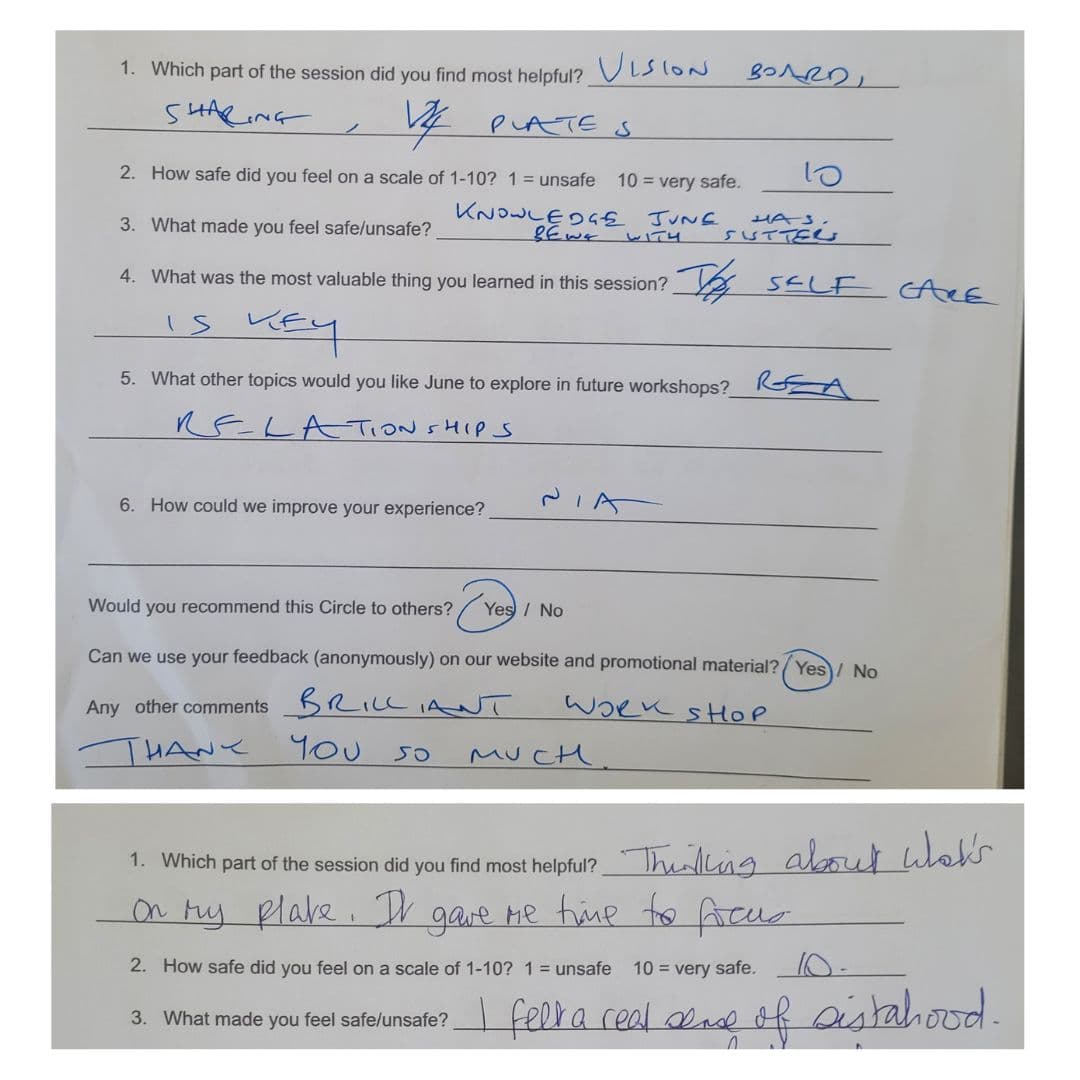 1. Which part of the session did you find most helpful? VISION BOARD,
SHARING, PLATES
2. How safe did you feel on a scale of 1-10? 1 = unsafe 10 = very safe. 10
3. What made you feel safe/unsafe? KNOWLEDGE JUNE HAS.
BEING WITH SISTERS
4. What was the most valuable thing you learned in this session? SELF CARE
IS KEY
5. What other topics would you like June to explore in future workshops? REA
RELATIONSHIPS
6. How could we improve your experience? N/A
Would you recommend this Circle to others? Yes / No
Can we use your feedback (anonymously) on our website and promotional material? Yes / No
Any other comments BRILLIANT WORKSHOP
THANK YOU SO MUCH.
1. Which part of the session did you find most helpful? Thinking about what's
on my plate. It gave me time to focus
2. How safe did you feel on a scale of 1-10? 1 = unsafe 10 = very safe. 10.
3. What made you feel safe/unsafe? I felt a real sense of sistahood.